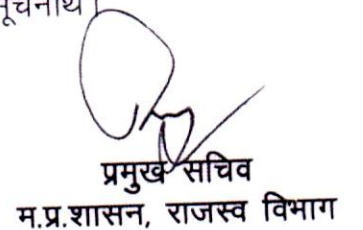 सूचनार्थ।
प्रमुख सचिव
म.प्र.शासन, राजस्व विभाग